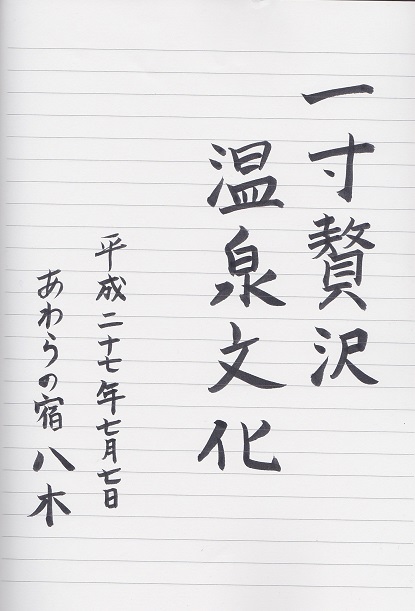 一寸贅沢
温泉文化
平成二十七年七月七日
あわらの宿 八木